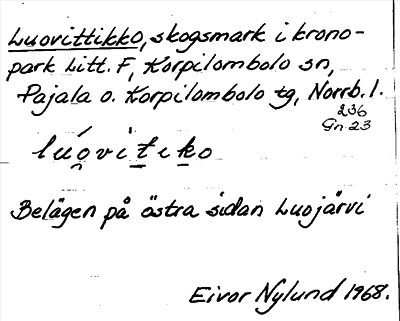 Luovittikko, skogsmark i krono-
park Litt. F, Korpilombolo sn,
Pajala o. Korpilombolo tg, Norrb. l.
236
Gn 23
lú̯ovit̲ik̲o
Belägen på östra sidan Luojärvi
Eivor Nylund 1968.